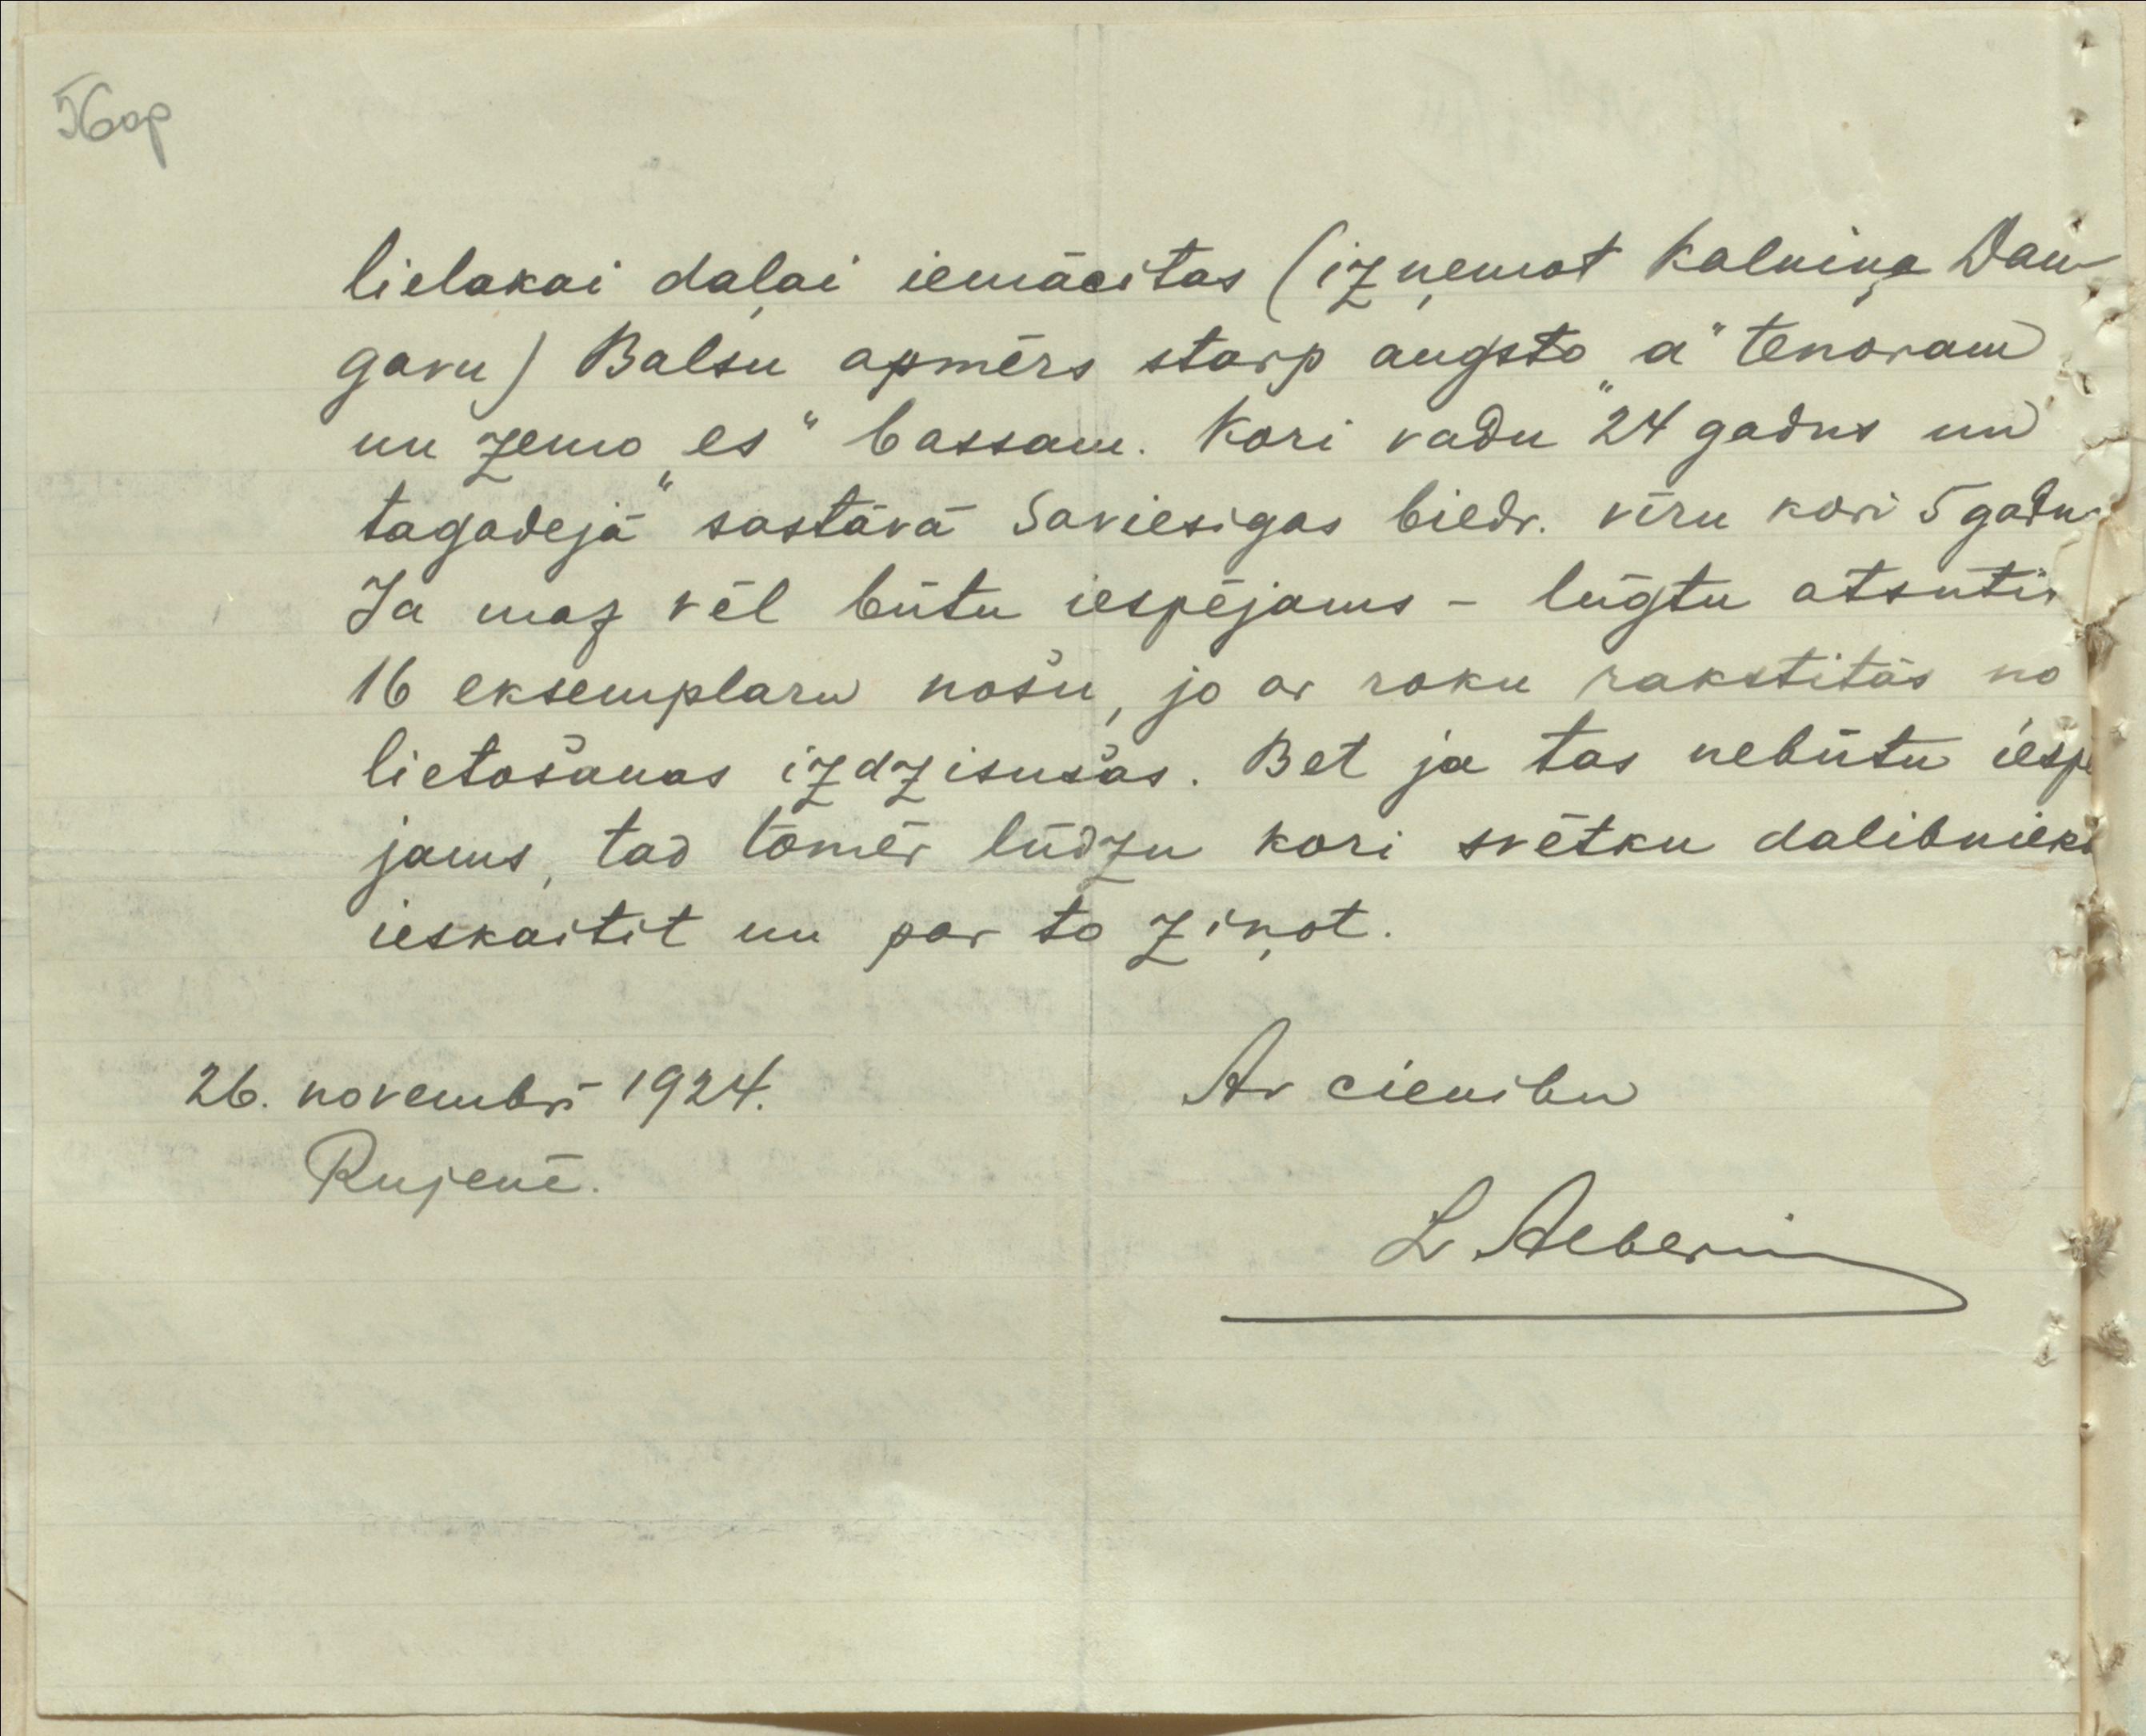 56op
lielakai daļai iemācitas (izņemot Kalniņa Dau-
gavu) Balsu apmērs starp augsto „a" tenoram
un zemo „es" bassam. Kori vadu 24 gadus un
tagadejā sastāvā Saviesigas biedr. vīru kori 5 gadu
Ja maz vēl būtu iespējams - lūgtu atsutit
16 eksemplaru nošu, jo ar roku rakstitās no
lietošanas izdzisušas. Bet ja tas nebūtu iespē
jams, tad tomēr lūdzu kori svētku dalibnieks
ieskaitit un par to ziņot.
26. novembrī 1924. Ar cienibu
Rujenē.